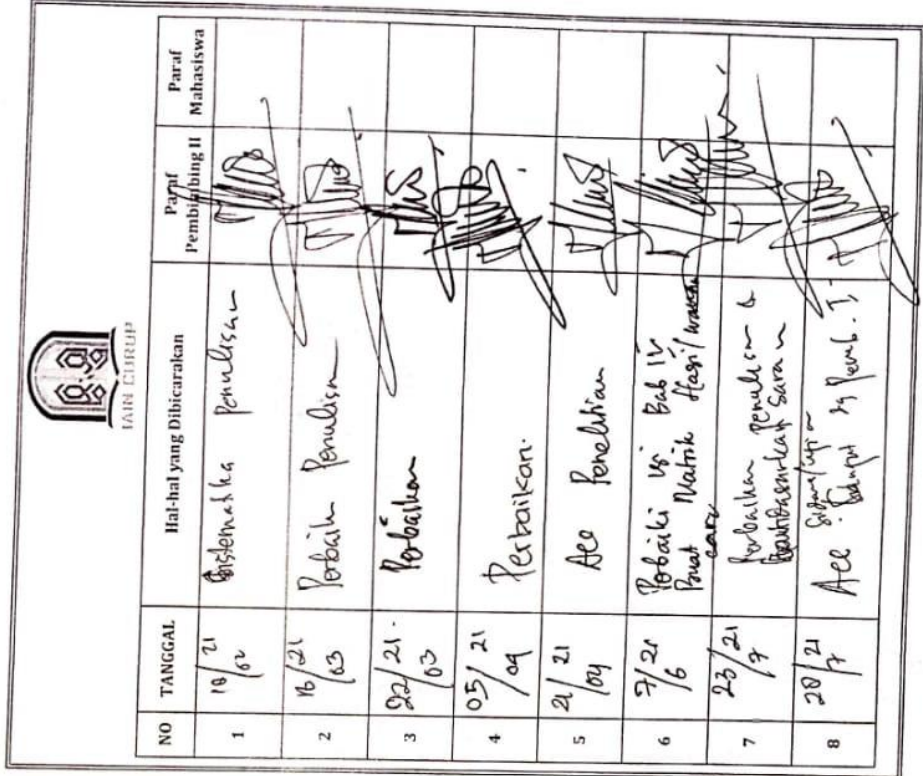 IAIN CURUP
NO TANGGAL Hal-hal yang Dibicarakan Paraf Pembimbing II Paraf Mahasiswa
1 18/02 21 Sistematika Penulisan
2 16/03 21 Perbaiki Penulisan
3 22/03 21. Perbaikan
4 05/04 21 Perbaikan.
5 21/04 21 Acc Penelitian
6 7/6 21 Perbaiki isi Bab IV
Buat Matrik Hasil
7 23/7 21 Perbaikan penulisan
berdasarkan saran
8 28/7 21
Acc Pemb. I